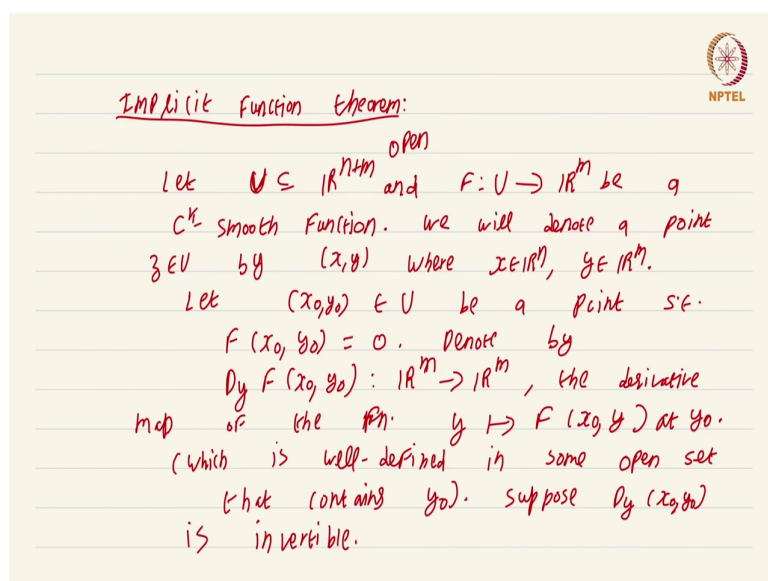 NPTEL
Implicit Function theorem:
open
Let U ⊆ ℝ^{n+m} and F: U → ℝ^m be a
C^k smooth function. we will denote a point
z ∈ U by (x,y) where x ∈ ℝ^n, y ∈ ℝ^m.
Let (x₀,y₀) ∈ U be a point s.t.
F(x₀, y₀) = 0. Denote by
D_y F(x₀, y₀) : ℝ^m → ℝ^m, the derivative
map of the fn. y ↦ F(x₀, y) at y₀.
(which is well-defined in some open set
that contains y₀). suppose D_y (x₀,y₀)
is invertible.